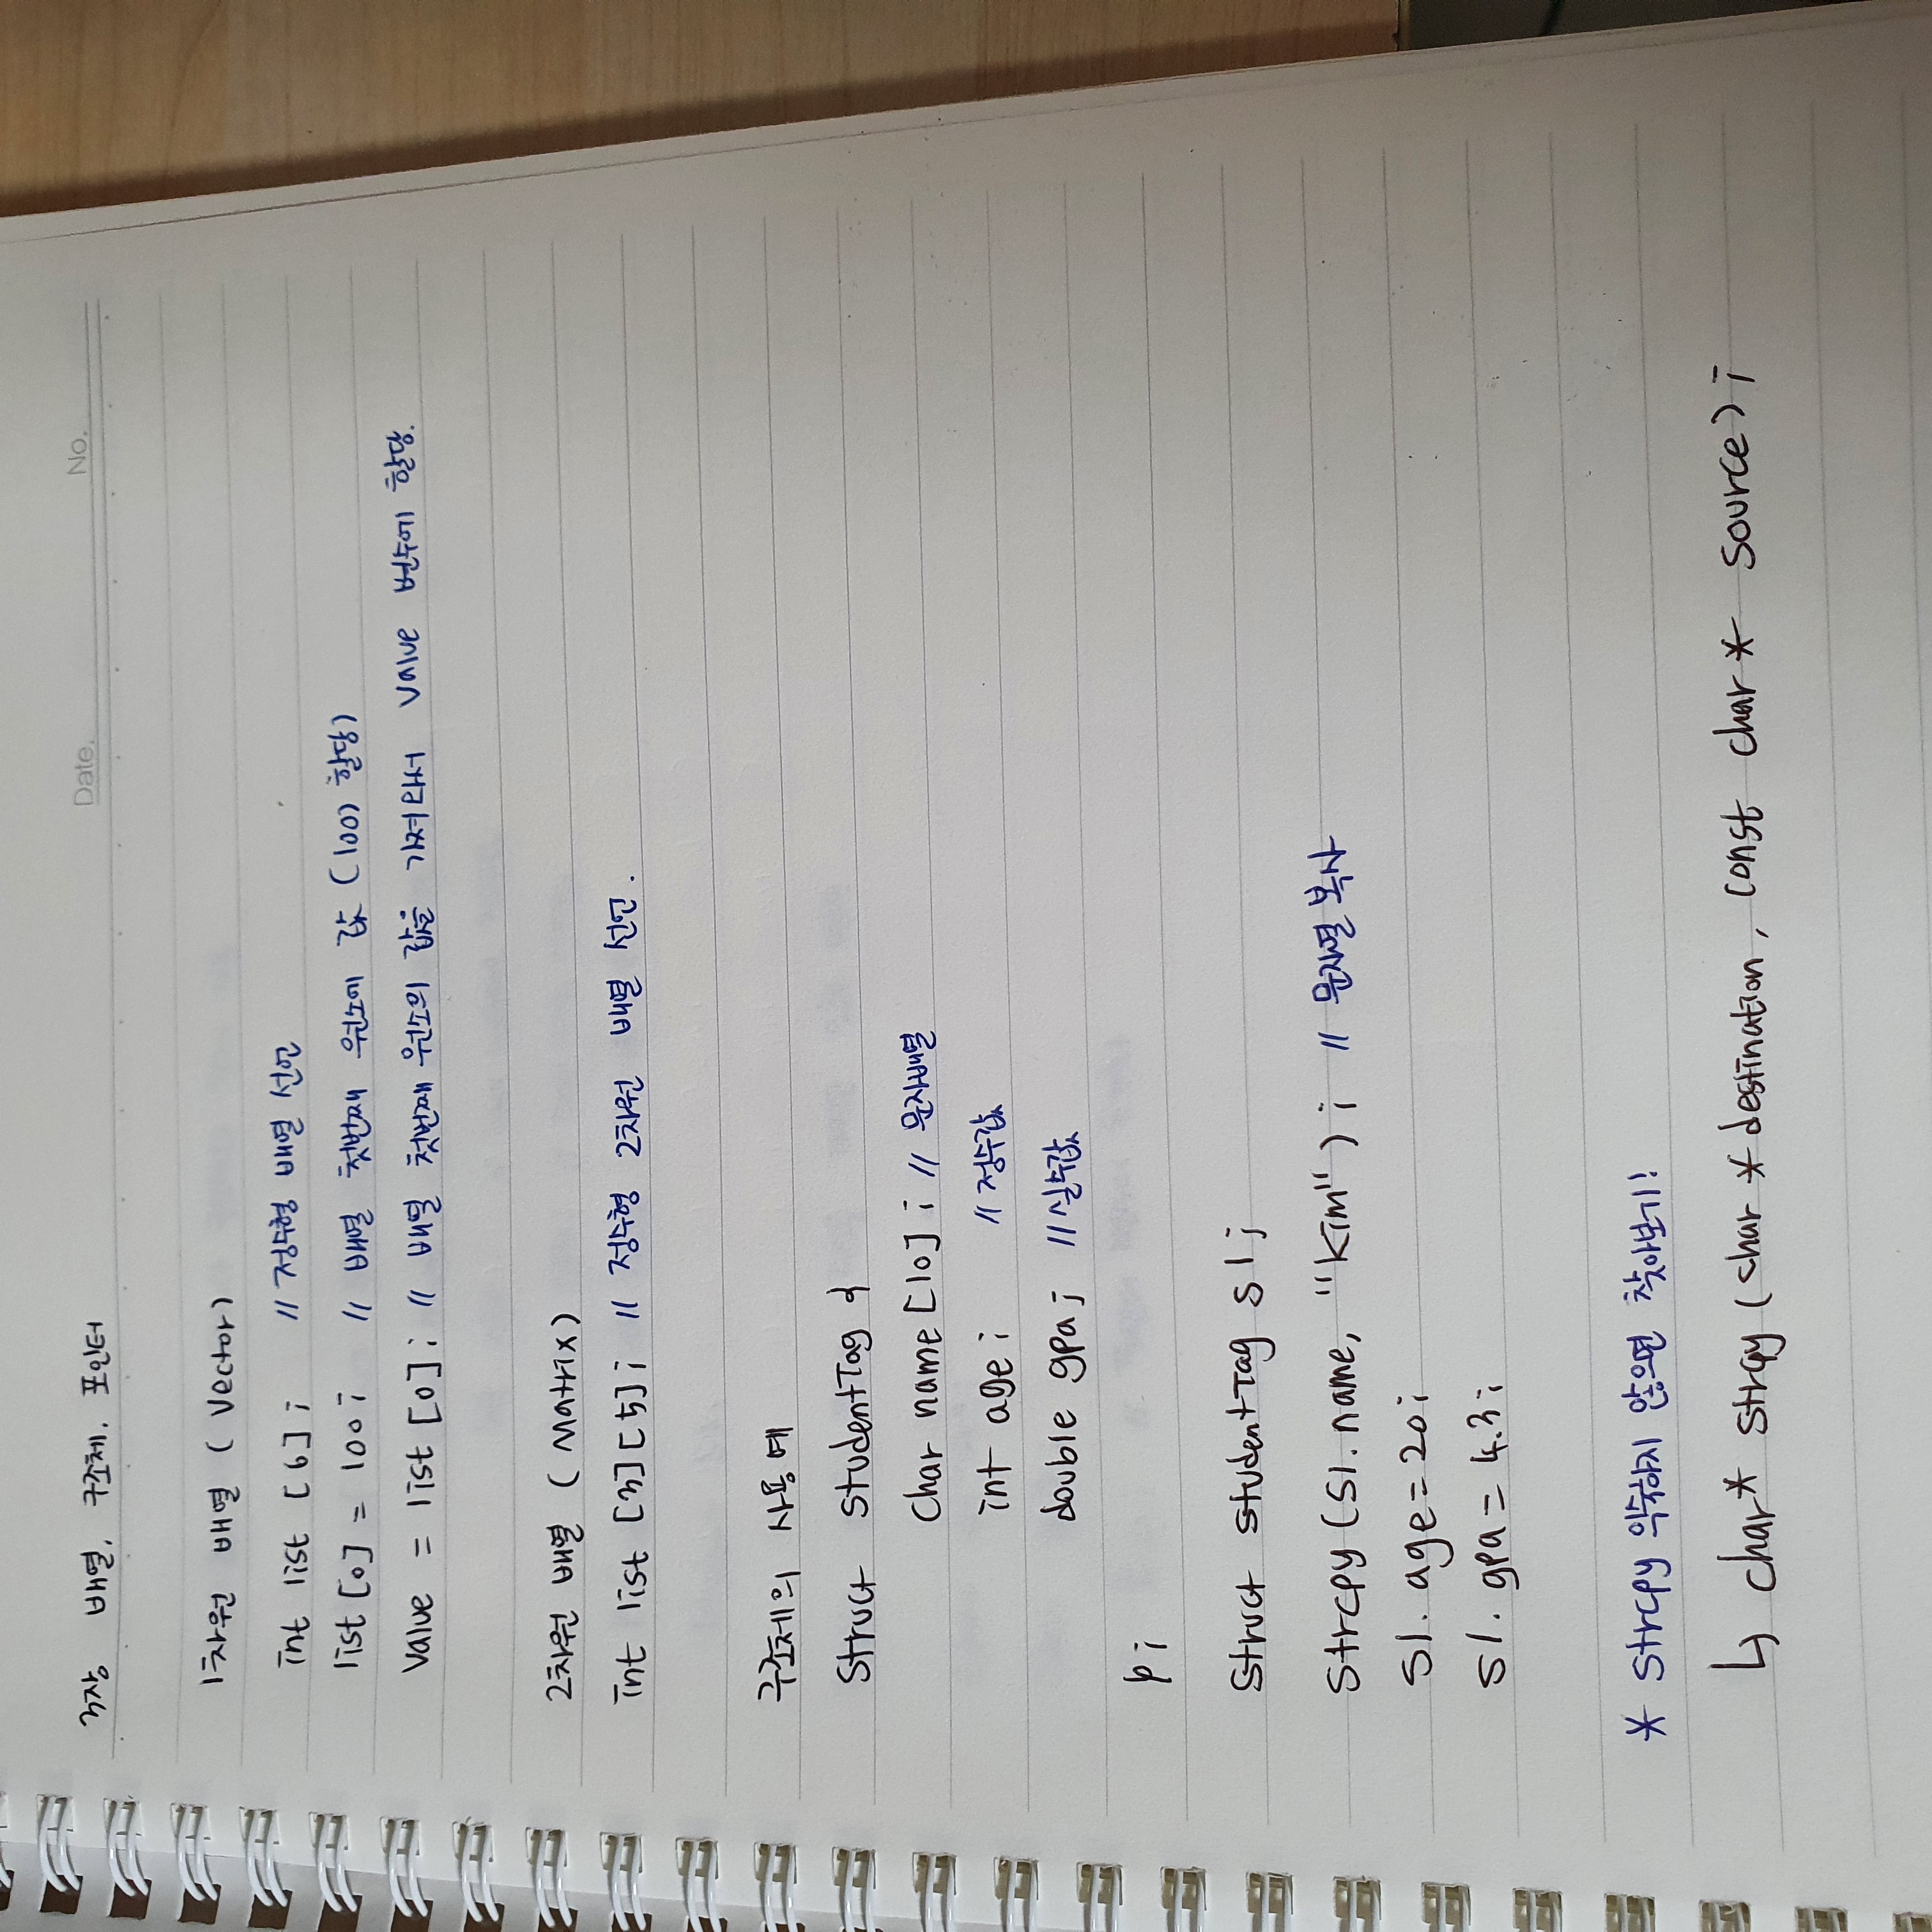 3장 배열, 구조체, 포인터
Date. No.
1차원 배열 ( Vector)
int list [6] ; // 정수형 배열 선언
list [0] = 100 ; // 배열 첫번째 원소에 값 (100) 할당)
Value = list [0] ; // 배열 첫번째 원소의 값을 가져와서 Value 변수에 할당.
2차원 배열 ( Matrix)
int list [3][5] ; // 정수형 2차원 배열 선언.
구조체의 사용 예
Struct studentTag {
Char name [10] ; // 문자배열
int age ; // 정수값
double gpa ; // 실수값
} ;
Struct studentTag s1 ;
Strcpy (S1. name, "Kim" ) ; // 문자열 복사
S1. age = 20 ;
S1. gpa = 4.3 ;
* Strcpy 익숙하지 않으면 찾아보기!
↳ char* strcpy ( char * destination, const char * source) ;